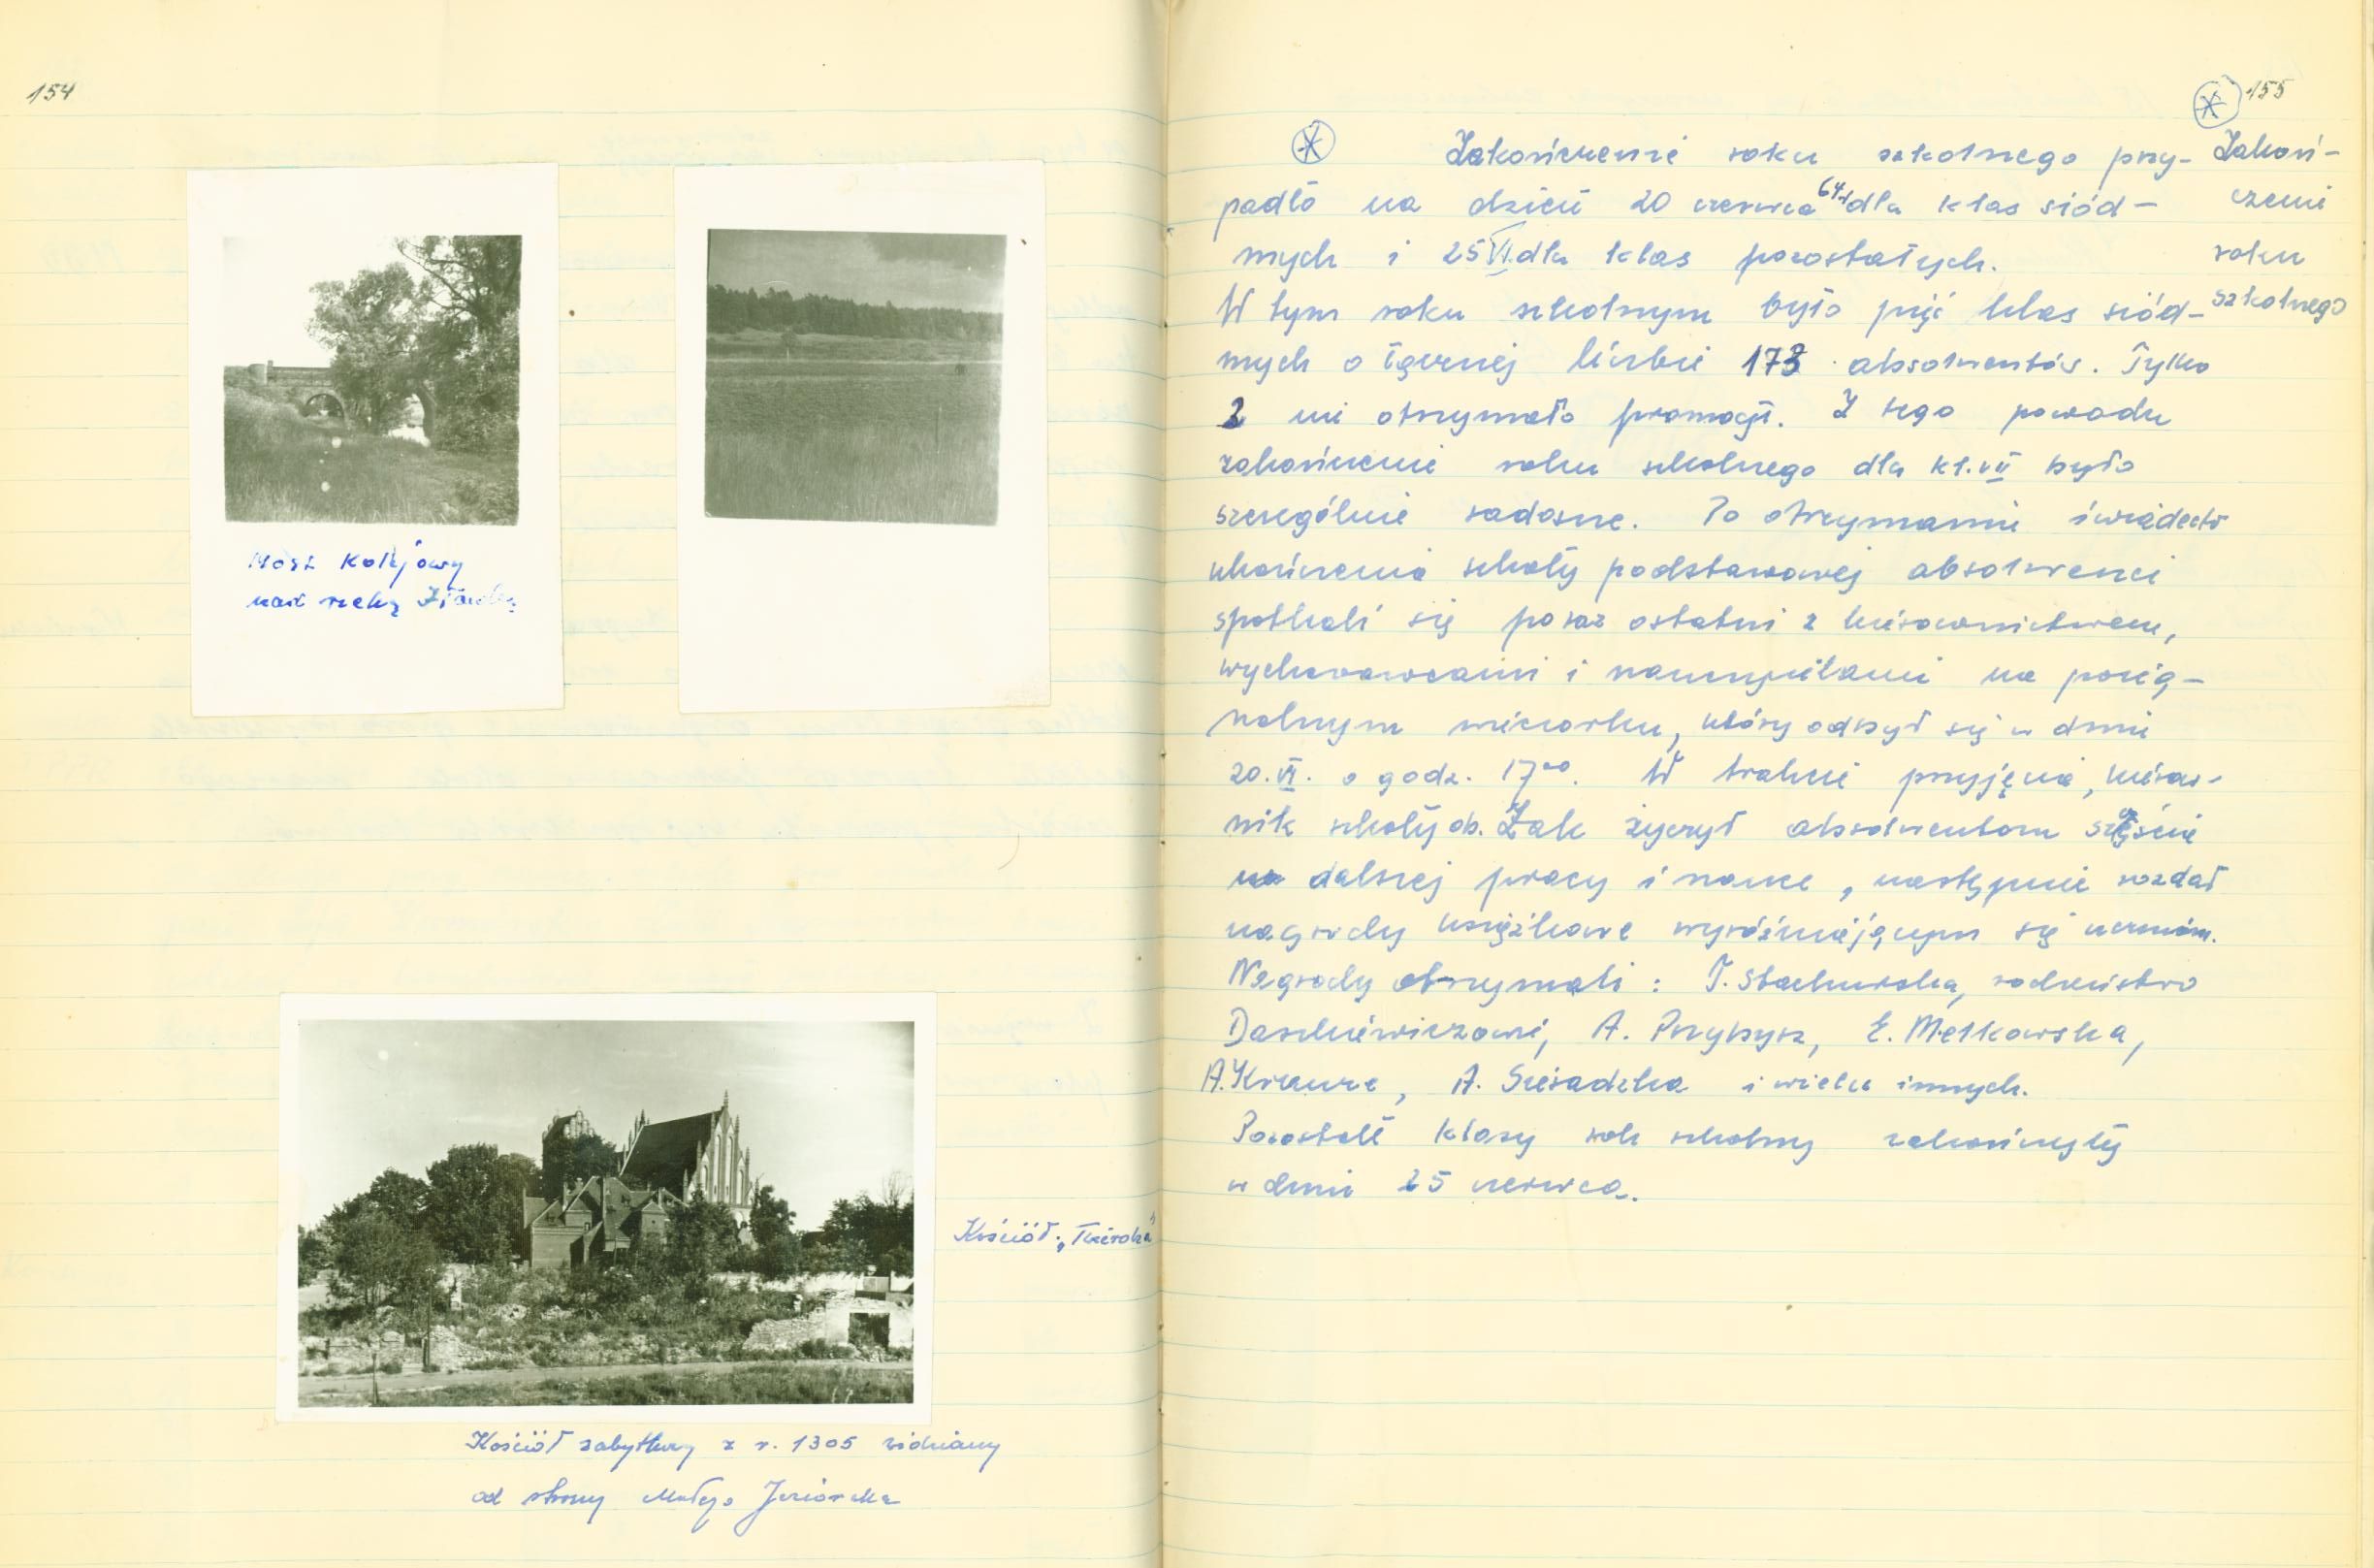 154
Most kolejowy
nad rzeką
Kościół
Kościół zabytkowy z r. 1305 widziany
od strony Małego Jeziorka
155
Zakoń-
czenie
roku
szkolnego
Zakończenie roku szkolnego przy-
padło na dzień 20 czerwca 64r dla klas siód-
mych i 25 VI dla klas pozostałych.
W tym roku szkolnym było pięć klas siód-
mych o łącznej liczbie 173 absolwentów. Tylko
2 nie otrzymało promocji. Z tego powodu
zakończenie roku szkolnego dla kl. VII było
szczególnie radosne. Po otrzymaniu świadectw
ukończenia szkoły podstawowej absolwenci
spotkali się po raz ostatni z kierownictwem,
wychowawcami i nauczycielami na pożeg-
nalnym wieczorku, który odbył się w dniu
20.VI. o godz. 17⁰⁰. W trakcie przyjęcia, kierow-
nik szkoły ob. Żak życzył absolwentom szczęścia
na dalszej pracy i nauce, następnie rozdał
nagrody książkowe wyróżniającym się uczniom.
Nagrody otrzymali: T. Stachurska, rodzeństwo
Daszkiewiczowie, A. Przybysz, E. Metkowska,
A. Krauze, A. Sieradzka i wielu innych.
Pozostałe klasy rok szkolny zakończyły
w dniu 25 czerwca.